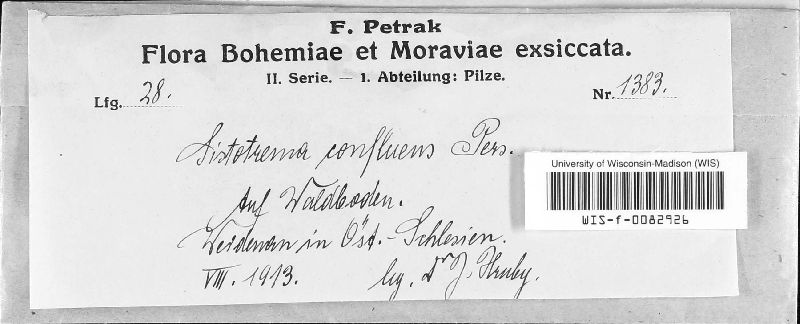 F. Petrak
Flora Bohemiae et Moraviae exsiccata.
II. Serie. — 1. Abteilung: Pilze.
Lfg. 28.
Nr. 1383.
Sistotrema confluens Pers.
Auf Waldboden.
Weidenau in Öst.-Schlesien.
VIII. 1913. leg. Dr J. Hruby.
University of Wisconsin-Madison (WIS)
WIS-f-0082926